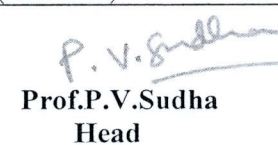 P. V. Sudha
Prof.P.V.Sudha
Head